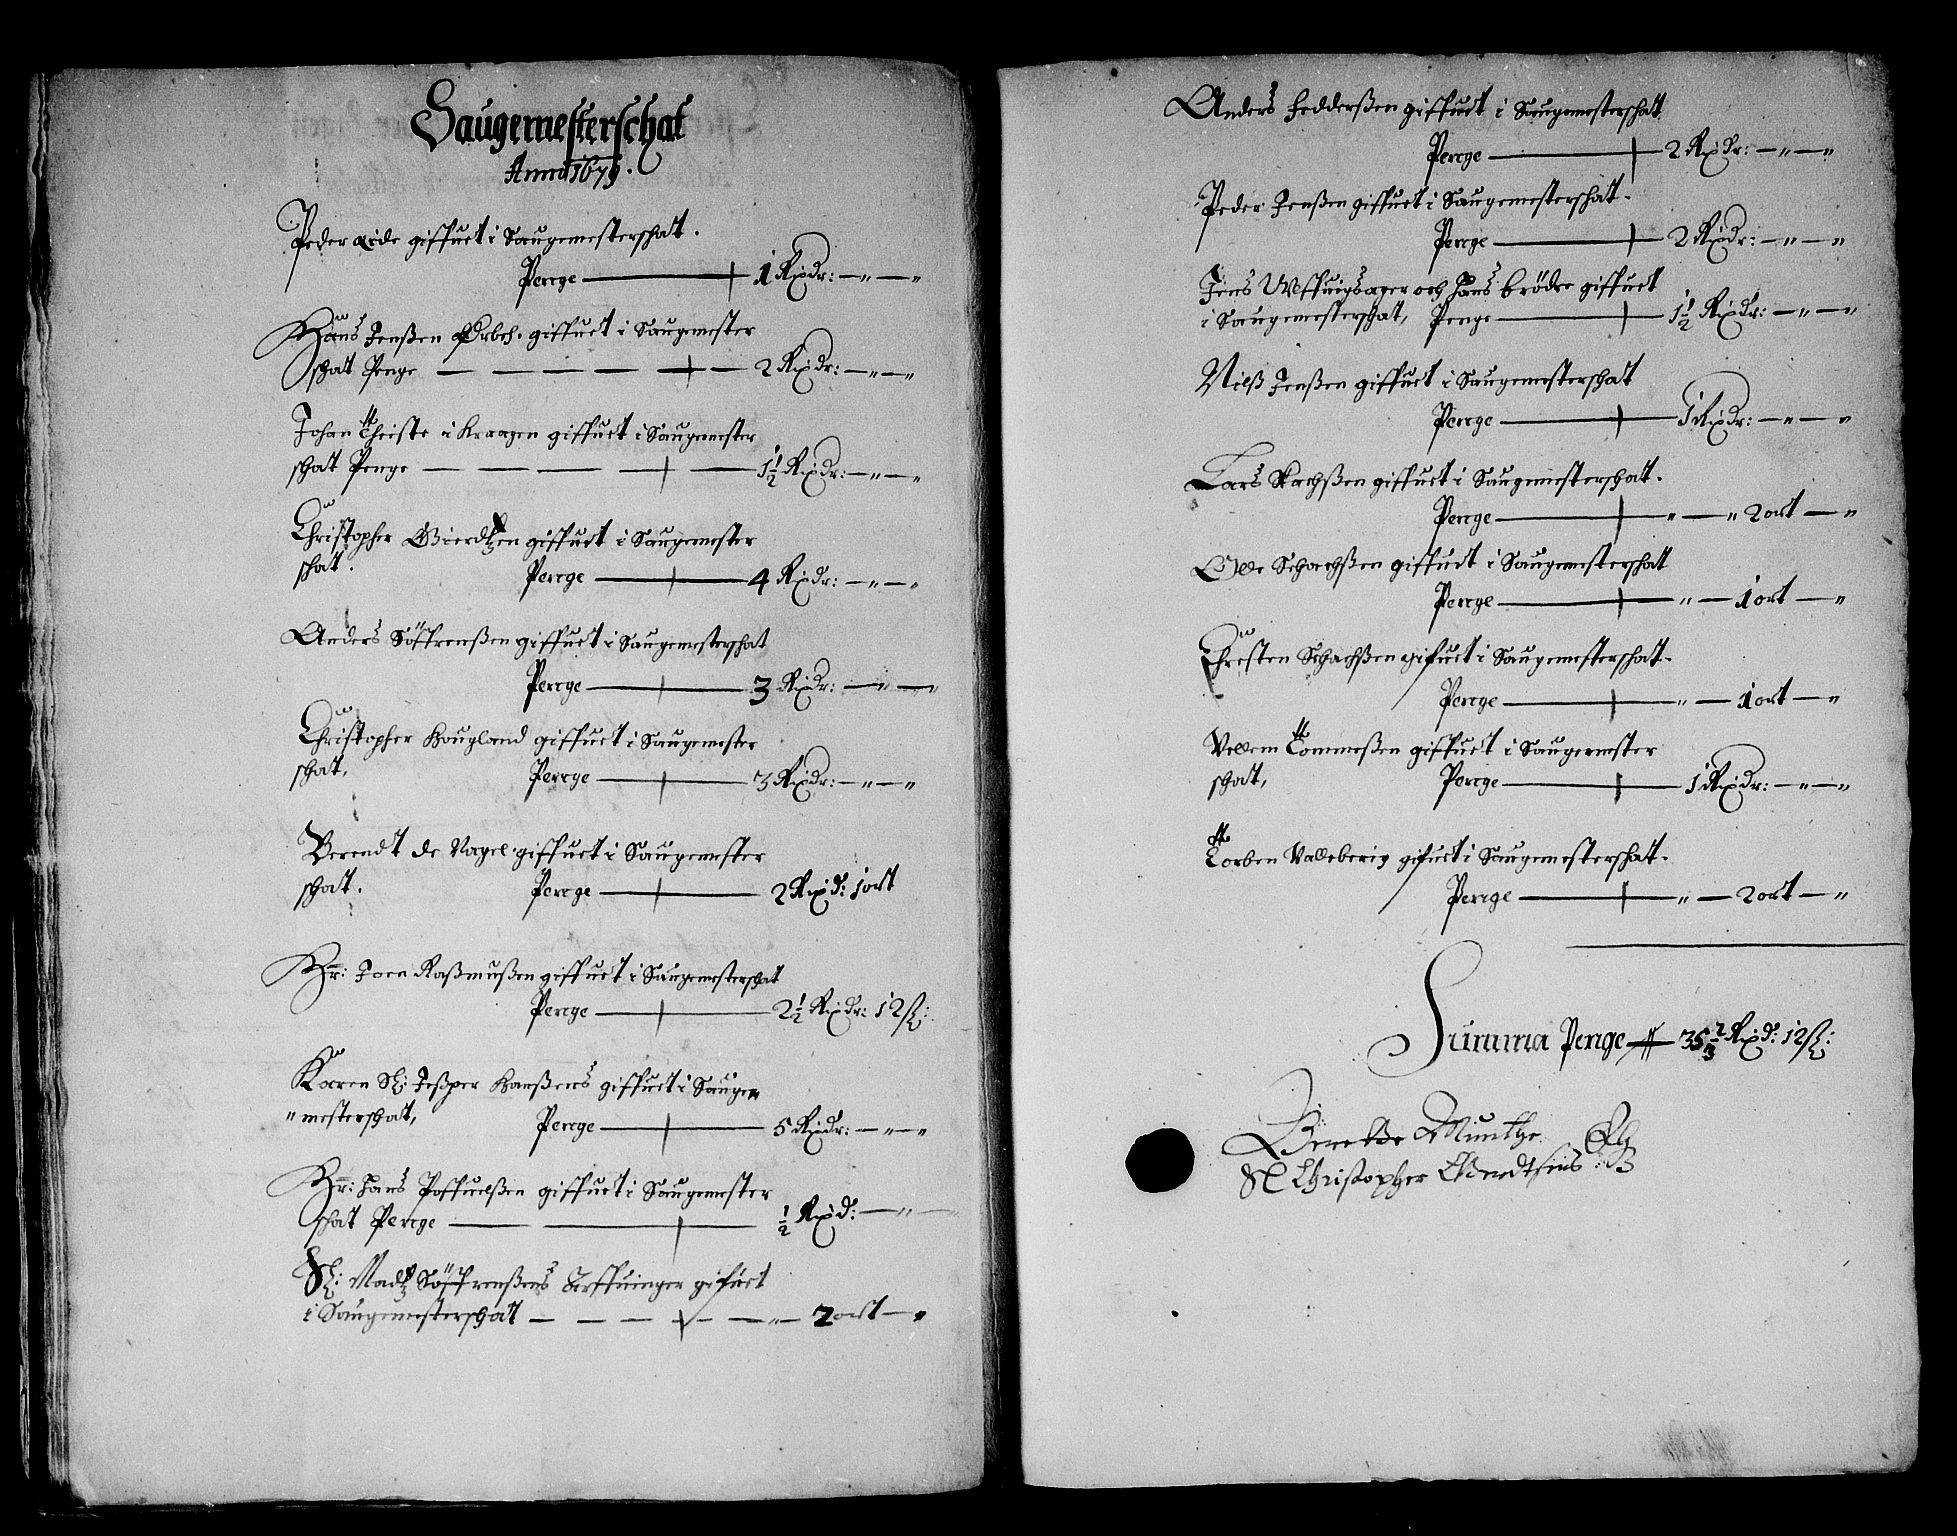 Saugemesterschat
Anno 1679.
Peder Eide giffuet i Saugemesterschat.
Penge — 1 Rixdr: — „ — „
Hans Jenßen Orbeh. giffuet i Saugemester
schat Penge — 2 Rixdr: — „ — „
Johan Theiste i Kraagen giffuet i Saugemester
schat Penge — 1½ Rixdr: — „ — „
Christopher Gierdtzen giffuet i Saugemester
schat. Penge — 4 Rixdr: — „ — „
Anders Söffrenßen giffuet i Saugemesterschat
Penge — 3 Rixdr: — „ — „
Christopher Hougland giffuet i Saugemester
schat, Penge — 3 Rixdr: — „ — „
Berendt de Nagel giffuet i Saugemester
schat. Penge — 2 Rixd: 1 ort
Hr: Joen Raßmußen giffuet i Saugemesterschat
Penge — 2½ Rixdr: 12 ß:
Karen Sl: Jeßper Hanßens giffuet i Saugem
„mesterschat, Penge — 5 Rixdr: — „ — „
Hr: Hans Poffuelßen giffuet i Saugemester
schat Penge — ½ Rixd: — „ —
Sl: Madtz Söffrenßens Arffuinger gifuet
i Saugemesterschat — „ — 2 ort — „
Anders Fedderßen giffuet i Saugemesterschat
Penge — 2 Rixdr: — „ — „
Peder Jenßen giffuet i Saugemesterschat.
Penge — 2 Rixdr: — „ — „
Jens och Hans brödre giffuet
i Saugemesterschat, Penge — 1½ Rixdr: — „ — „
Nilß Jenßen giffuet i Saugemesterschat
Penge — 1 Rixdr: — „ — „
Lars giffuet i Saugemesterschat.
Penge — „ — „ 2 ort — „
Olle Schachßen giffuet i Saugemesterschat
Penge — „ — 1 ort — „
Christen Schachßen gifuet i Saugemesterschat.
Penge — „ — 1 ort — „
Vellem Tommeßen giffuet i Saugemester
schat, Penge — 1 Rixdr: — „ — „
Torben Valleberig gifuet i Saugemesterschat.
Penge — „ — 2 ort — „
Summa Penge — 35 Rixd: 12 ß:
Munthe
Sl Christopher Gierdtsens